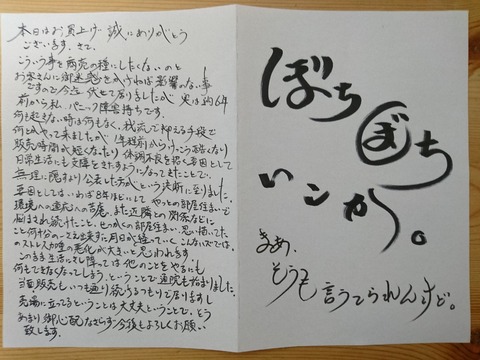 本日はお買上げ誠にありがとう
ございます。さて、
こういう事を商売の種にしたくないのと
お客さんに御迷惑をかけねば影響のない事
ですので今迄伏せて居りましたが実は約6年
前から私、パニック障害持ちです。
何も起きない時は何もなく、我流で抑える手段で
何とかやって来ましたが1年程前からけっこう酷くなり
販売時間が短くなったり体調不良を招く要因として
日常生活にも支障をきたすようになってきたことで、
無理に隠すより公表した方がという決断に至りました。
要因としてはいわば8年ほどしてやっとの部屋住まいで
環境への適応への苦慮、また近隣との関係などに
悩まされ続けたこと、せっかくの部屋住まい、思い描いてた
こと何十分の一も出来ずに月日が経っていくこんなハズでは、
のストレスが増々悪化が大きいと思われます
このまま生活に支し障っては他のことをやるにも
何もできなくなってしまう、ということで通院も始まりました。
当面販売もいつも通り続けるつもりで居りますし
売場に立ってるということは大丈夫ということで、どう
あまり御心配なさらず今後もよろしくお願い
致します。
ぼち
ぼち
いこか。
まあ、
そうも
言うてられんけど。